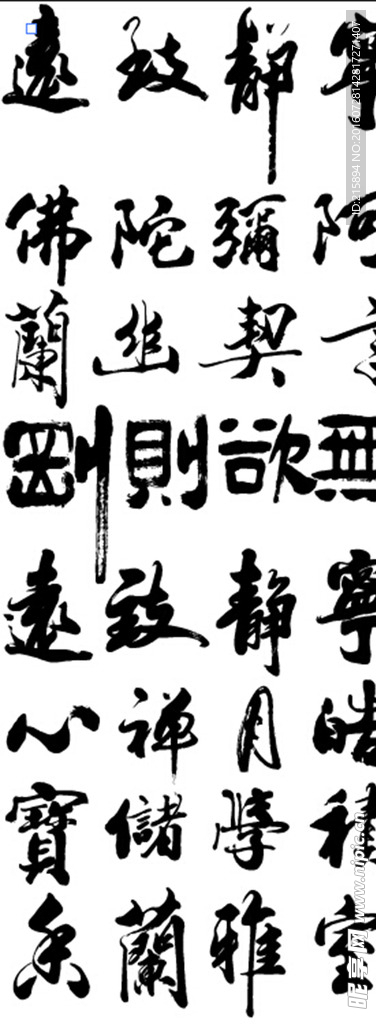 寧靜致遠
阿彌陀佛
言契幽蘭
無欲則剛
寧靜致遠
皓月禅心
積學儲寶
室雅蘭香
ID:215894 NO:20160728142817271407
昵享网 www.nipic.cn